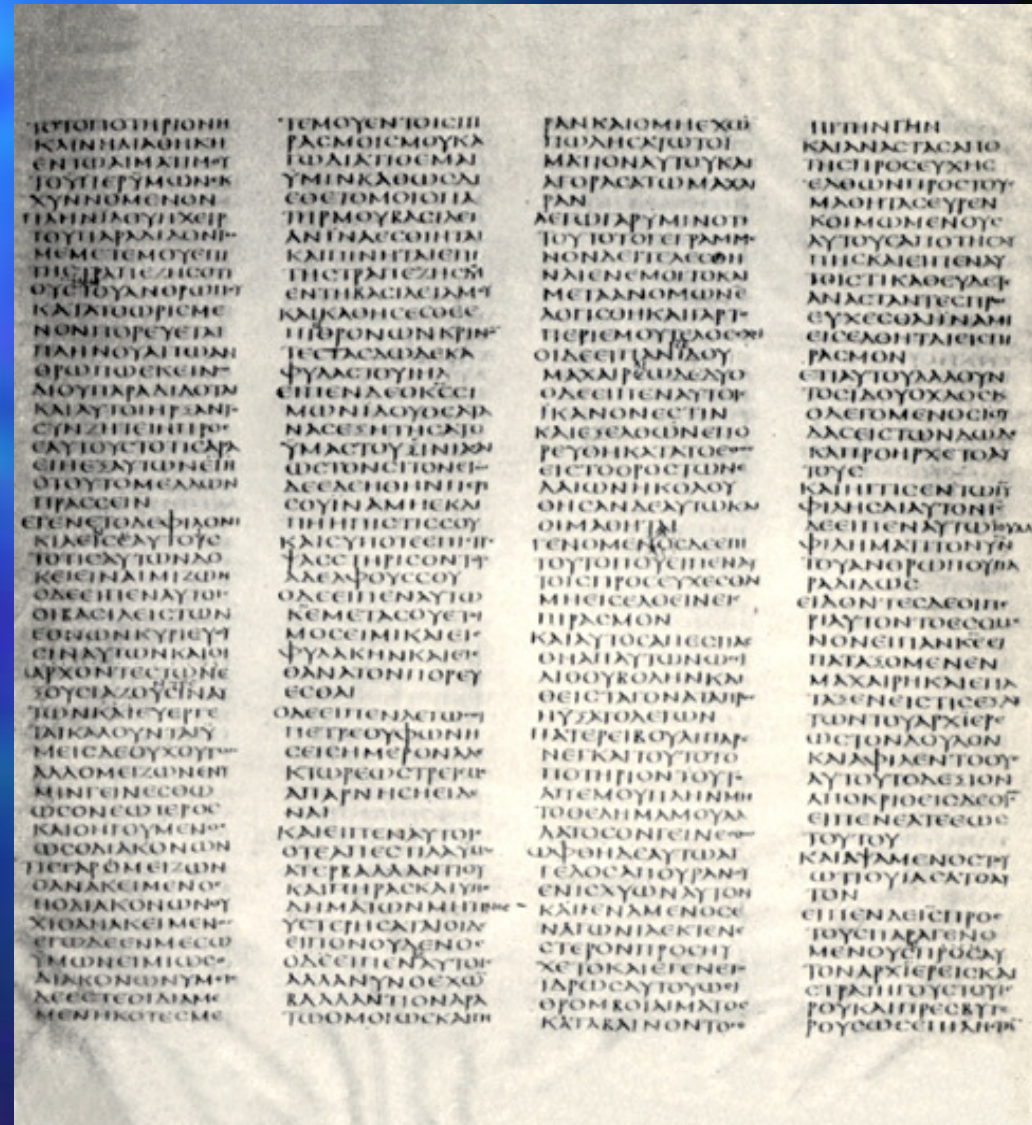 ΤΟΥΤΟΤΟΠΟΤΗΡΙΟΝΗ
ΚΑΙΝΗΔΙΑΘΗΚΗ
ΕΝΤΩΑΙΜΑΤΙΜΟΥ
ΤΟΥΠΕΡΥΜΩΝΕΚ
ΧΥΝΝΟΜΕΝΟΝ
ΠΛΗΝΙΔΟΥΗΧΕΙΡ
ΤΟΥΠΑΡΑΔΙΔΟΝΤΟϹ
ΜΕΜΕΤΕΜΟΥΕΠΙ
ΤΗϹΤΡΑΠΕΖΗϹΟΤΙ
ΟΥϹΤΟΥΑΝΘΡΩΠΟΥ
ΚΑΤΑΤΟΩΡΙϹΜΕ
ΝΟΝΠΟΡΕΥΕΤΑΙ
ΠΛΗΝΟΥΑΙΤΩΑΝ
ΘΡΩΠΩΕΚΕΙΝΩ
ΔΙΟΥΠΑΡΑΔΙΔΟΤΑΙ
ΚΑΙΑΥΤΟΙΗΡΞΑΝΤΟ
ϹΥΝΖΗΤΕΙΝΠΡΟϹ
ΕΑΥΤΟΥϹΤΟΤΙϹΑΡΑ
ΕΙΗΕΞΑΥΤΩΝΕΙΗ
ΟΤΟΥΤΟΜΕΛΛΩΝ
ΠΡΑϹϹΕΙΝ
ΕΓΕΝΕΤΟΔΕΦΙΛΟΝΙ
ΚΙΑΕΙϹΕΑΥΤΟΥϹ
ΤΟΤΙϹΑΥΤΩΝΔΟ
ΚΕΙΕΙΝΑΙΜΙΖΩΝ
ΟΔΕΕΙΠΕΝΑΥΤΟΙϹ
ΟΙΒΑϹΙΛΕΙϹΤΩΝ
ΕΘΝΩΝΚΥΡΙΕΥΟΥ
ϹΙΝΑΥΤΩΝΚΑΙΟΙ
ΑΡΧΟΝΤΕϹΤΩΝΕ
ΞΟΥϹΙΑΖΟΥϹΙΝΑΥ
ΤΩΝΚΑΙΕΥΕΡΓΕ
ΤΑΙΚΑΛΟΥΝΤΑΙΥ
ΜΕΙϹΔΕΟΥΧΟΥΤΩϹ
ΑΛΛΟΜΕΙΖΩΝΕΝΥ
ΜΙΝΓΕΙΝΕϹΘΩ
ΩϹΟΝΕΩΤΕΡΟϹ
ΚΑΙΟΗΓΟΥΜΕΝΟϹ
ΩϹΟΔΙΑΚΟΝΩΝ
ΤΙϹΓΑΡΟΜΕΙΖΩΝ
ΟΑΝΑΚΕΙΜΕΝΟϹ
ΗΟΔΙΑΚΟΝΩΝΟΥ
ΧΙΟΑΝΑΚΕΙΜΕΝΟϹ
ΕΓΩΔΕΕΝΜΕϹΩ
ΥΜΩΝΕΙΜΙΩϹΟ
ΔΙΑΚΟΝΩΝΥΜΕΙϹ
ΔΕΕϹΤΕΟΙΔΙΑΜΕ
ΜΕΝΗΚΟΤΕϹΜΕ
ΤΕΜΟΥΕΝΤΟΙϹΠΙ
ΡΑϹΜΟΙϹΜΟΥΚΑ
ΓΩΔΙΑΤΙΘΕΜΑΙ
ΥΜΙΝΚΑΘΩϹΔΙ
ΕΘΕΤΟΜΟΙΟΠΑ
ΤΗΡΜΟΥΒΑϹΙΛΕΙ
ΑΝΙΝΑΕϹΘΙΗΤΑΙ
ΚΑΙΠΙΝΗΤΑΙΕΠΙ
ΤΗϹΤΡΑΠΕΖΗϹΜΟΥ
ΕΝΤΗΒΑϹΙΛΕΙΑΜΟΥ
ΚΑΙΚΑΘΗϹΕϹΘΕΕ
ΠΙΘΡΟΝΩΝΚΡΙΝΟ
ΤΕϹΤΑϹΔΩΔΕΚΑ
ΦΥΛΑϹΤΟΥΙΗΛ
ΕΙΠΕΝΔΕΟΚϹϹΙ
ΜΩΝΙΔΟΥΟϹΑΤΑ
ΝΑϹΕΞΗΤΗϹΑΤΟ
ΥΜΑϹΤΟΥϹΙΝΙΑϹΑΙ
ΩϹΤΟΝϹΙΤΟΝΕΓΩ
ΔΕΕΔΕΗΘΗΝΠΕΡΙ
ϹΟΥΙΝΑΜΗΕΚΛΙ
ΠΗΗΠΙϹΤΙϹϹΟΥ
ΚΑΙϹΥΠΟΤΕΕΠΙϹΤΡΕ
ΨΑϹϹΤΗΡΙϹΟΝΤΟΥϹ
ΑΔΕΛΦΟΥϹϹΟΥ
ΟΔΕΕΙΠΕΝΑΥΤΩ
ΚΕΜΕΤΑϹΟΥΕΤΟΙ
ΜΟϹΕΙΜΙΚΑΙΕΙϹ
ΦΥΛΑΚΗΝΚΑΙΕΙϹ
ΘΑΝΑΤΟΝΠΟΡΕΥ
ΕϹΘΑΙ
ΟΔΕΕΙΠΕΝΛΕΓΩϹΟΙ
ΠΕΤΡΕΟΥΦΩΝΗ
ϹΕΙϹΗΜΕΡΟΝΑΛΕ
ΚΤΩΡΕΩϹΤΡΕΙϹΜΕ
ΑΠΑΡΝΗϹΗΕΙΔΕ
ΝΑΙ
ΚΑΙΕΙΠΕΝΑΥΤΟΙϹ
ΟΤΕΑΠΕϹΤΙΛΑΥΜΑϹ
ΑΤΕΡΒΑΛΛΑΝΤΙΟΥ
ΚΑΙΠΗΡΑϹΚΑΙΥΠΟ
ΔΗΜΑΤΩΝΜΗΤΙΝΟϹ
ΥϹΤΕΡΗϹΑΤΑΙΟΙΔΕ
ΕΙΠΟΝΟΥΔΕΝΟϹ
ΟΔΕΕΙΠΕΝΑΥΤΟΙϹ
ΑΛΛΑΝΥΝΟΕΧΩ
ΒΑΛΛΑΝΤΙΟΝΑΡΑ
ΤΩΟΜΟΙΩϹΚΑΙΠΗ
ΡΑΝΚΑΙΟΜΗΕΧΩ
ΠΩΛΗϹΑΤΩΤΟΙ
ΜΑΤΙΟΝΑΥΤΟΥΚΑΙ
ΑΓΟΡΑϹΑΤΩΜΑΧΑΙ
ΡΑΝ
ΛΕΓΩΓΑΡΥΜΙΝΟΤΙ
ΤΟΥΤΟΤΟΓΕΓΡΑΜΜΕ
ΝΟΝΔΕΙΤΕΛΕϹΘΗ
ΝΑΙΕΝΕΜΟΙΤΟΚΑΙ
ΜΕΤΑΑΝΟΜΩΝΕ
ΛΟΓΙϹΘΗΚΑΙΓΑΡΤΟ
ΠΕΡΙΕΜΟΥΤΕΛΟϹΕΧΕΙ
ΟΙΔΕΕΙΠΑΝΙΔΟΥ
ΜΑΧΑΙΡΕΩΔΕΔΥΟ
ΟΔΕΕΙΠΕΝΑΥΤΟΙϹ
ΙΚΑΝΟΝΕϹΤΙΝ
ΚΑΙΕΞΕΛΘΩΝΕΠΟ
ΡΕΥΘΗΚΑΤΑΤΟΕΘΟϹ
ΕΙϹΤΟΟΡΟϹΤΩΝΕ
ΛΑΙΩΝΗΚΟΛΟΥ
ΘΗϹΑΝΔΕΑΥΤΩΚΑΙ
ΟΙΜΑΘΗΤΑΙ
ΓΕΝΟΜΕΝΟϹΔΕΕΠΙ
ΤΟΥΤΟΠΟΥΕΙΠΕΝΑΥ
ΤΟΙϹΠΡΟϹΕΥΧΕϹΘΑΙ
ΜΗΕΙϹΕΛΘΕΙΝΕΙϹ
ΠΙΡΑϹΜΟΝ
ΚΑΙΑΥΤΟϹΑΠΕϹΠΑϹ
ΘΗΑΠΑΥΤΩΝΩϹΙ
ΛΙΘΟΥΒΟΛΗΝΚΑΙ
ΘΕΙϹΤΑΓΟΝΑΤΑΠΡΟϹ
ΗΥΞΑΤΟΛΕΓΩΝ
ΠΑΤΕΡΕΙΒΟΥΛΕΙΠΑΡΕ
ΝΕΓΚΑΙΤΟΥΤΟΤΟ
ΠΟΤΗΡΙΟΝΤΟΥΤΟ
ΑΠΕΜΟΥΠΛΗΝΜΗ
ΤΟΘΕΛΗΜΑΜΟΥΑΛ
ΛΑΤΟϹΟΝΓΕΙΝΕϹΘΩ
ΩΦΘΗΔΕΑΥΤΩΑΓ
ΓΕΛΟϹΑΠΟΥΡΑΝΟΥ
ΕΝΙϹΧΥΩΝΑΥΤΟΝ
ΚΑΙΓΕΝΑΜΕΝΟϹΕ
ΝΑΓΩΝΙΑΕΚΤΕΝΕ
ϹΤΕΡΟΝΠΡΟϹΗΥ
ΧΕΤΟΚΑΙΕΓΕΝΕΤΟ
ΙΔΡΩϹΑΥΤΟΥΩϹΙ
ΘΡΟΜΒΟΙΑΙΜΑΤΟϹ
ΚΑΤΑΒΑΙΝΟΝΤΟϹ
ΕΠΙΤΗΝΓΗΝ
ΚΑΙΑΝΑϹΤΑϹΑΠΟ
ΤΗϹΠΡΟϹΕΥΧΗϹ
ΕΛΘΩΝΠΡΟϹΤΟΥϹ
ΜΑΘΗΤΑϹΕΥΡΕΝ
ΚΟΙΜΩΜΕΝΟΥϹ
ΑΥΤΟΥϹΑΠΟΤΗϹΛΥ
ΠΗϹΚΑΙΕΙΠΕΝΑΥ
ΤΟΙϹΤΙΚΑΘΕΥΔΕΤΕ
ΑΝΑϹΤΑΝΤΕϹΠΡΟϹ
ΕΥΧΕϹΘΑΙΙΝΑΜΗ
ΕΙϹΕΛΘΗΤΑΙΕΙϹΠΙ
ΡΑϹΜΟΝ
ΕΤΙΑΥΤΟΥΛΑΛΟΥΝ
ΤΟϹΙΔΟΥΟΧΛΟϹΚΑΙ
ΟΛΕΓΟΜΕΝΟϹΙΟΥ
ΔΑϹΕΙϹΤΩΝΔΩΔΕΚΑ
ΚΑΙΠΡΟΗΡΧΕΤΟΑΥ
ΤΟΥϹ
ΚΑΙΗΓΓΙϹΕΝΤΩΙΥ
ΦΙΛΗϹΑΙΑΥΤΟΝΙϹ
ΔΕΕΙΠΕΝΑΥΤΩΙΟΥΔΑ
ΦΙΛΗΜΑΤΙΤΟΝΥΝ
ΤΟΥΑΝΘΡΩΠΟΥΠΑ
ΡΑΔΙΔΩϹ
ΕΙΔΟΝΤΕϹΔΕΟΙΠΕ
ΡΙΑΥΤΟΝΤΟΕϹΟΜΕ
ΝΟΝΕΙΠΑΝΚΕΕΙ
ΠΑΤΑΞΟΜΕΝΕΝ
ΜΑΧΑΙΡΗΚΑΙΕΠΑ
ΤΑΞΕΝΕΙϹΤΙϹΕΞΑΥ
ΤΩΝΤΟΥΑΡΧΙΕΡΕ
ΩϹΤΟΝΔΟΥΛΟΝ
ΚΑΙΑΦΙΛΕΝΤΟΟΥϹ
ΑΥΤΟΥΤΟΔΕΞΙΟΝ
ΑΠΟΚΡΙΘΕΙϹΔΕΟΙϹ
ΕΙΠΕΝΕΑΤΕΕΩϹ
ΤΟΥΤΟΥ
ΚΑΙΑΨΑΜΕΝΟϹΤΟΥ
ΩΤΙΟΥΙΑϹΑΤΟΑΥ
ΤΟΝ
ΕΙΠΕΝΔΕΙϹΠΡΟϹ
ΤΟΥϹΠΑΡΑΓΕΝΟ
ΜΕΝΟΥϹΠΡΟϹΑΥ
ΤΟΝΑΡΧΙΕΡΕΙϹΚΑΙ
ϹΤΡΑΤΗΓΟΥϹΤΟΥΙΕ
ΡΟΥΚΑΙΠΡΕϹΒΥΤΕ
ΡΟΥϹΩϹΕΠΙΛΗϹΤΗ